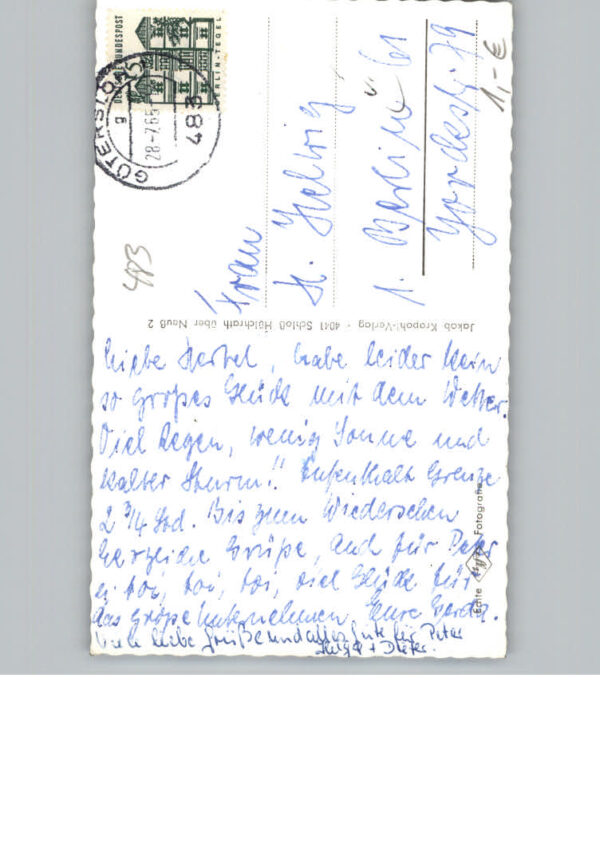 DEUTSCHE BUNDESPOST
BERLIN-TEGEL
GÜTERSLOH
483
28-7.65
g
Frau
H. Helwig
1. Berlin
Yorckstr. 79
1,- €
483
Jakob Kropohl-Verlag · 4041 Schloß Hülchrath über Neuß 2
Echte Agfa Fotografie
liebe Herbel, habe leider kein
so großes Glück mit dem Wetter.
Viel Regen, wenig Sonne und
kalter Sturm!! Aufenthalt Grenze
2 3/4 Std. Bis zum Wiedersehen
herzliche Grüße, und für Peter
ei toi, toi, toi, viel Glück für
das große Unternehmen. Eure Gerda.
Viele liebe Grüße und alles Gute für Peter
Helga + Dieter.